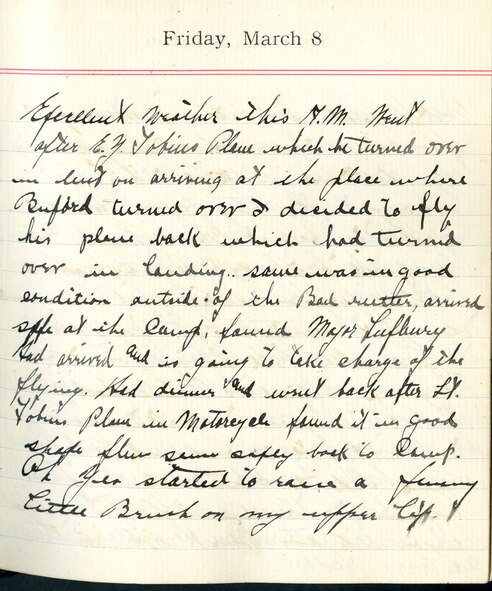 Friday, March 8
Excellent Weather this A.M. Went
after E.Y. Tobins Plane which he turned over
in but on arriving at the place where
Buford turned over I decided to fly
his plane back which had turned
over in landing.. same was in good
condition outside of the Bad rutter, arrived
safe at the Camp, found Major Lufbury
Had arrived and is going to take charge of the
flying. Had dinner and went back after Lt.
Tobins Plane in Motorcycle found it in good
shape flew same safey back to Camp.
Oh yea started to raise a funny
little Brush on my upper lip.